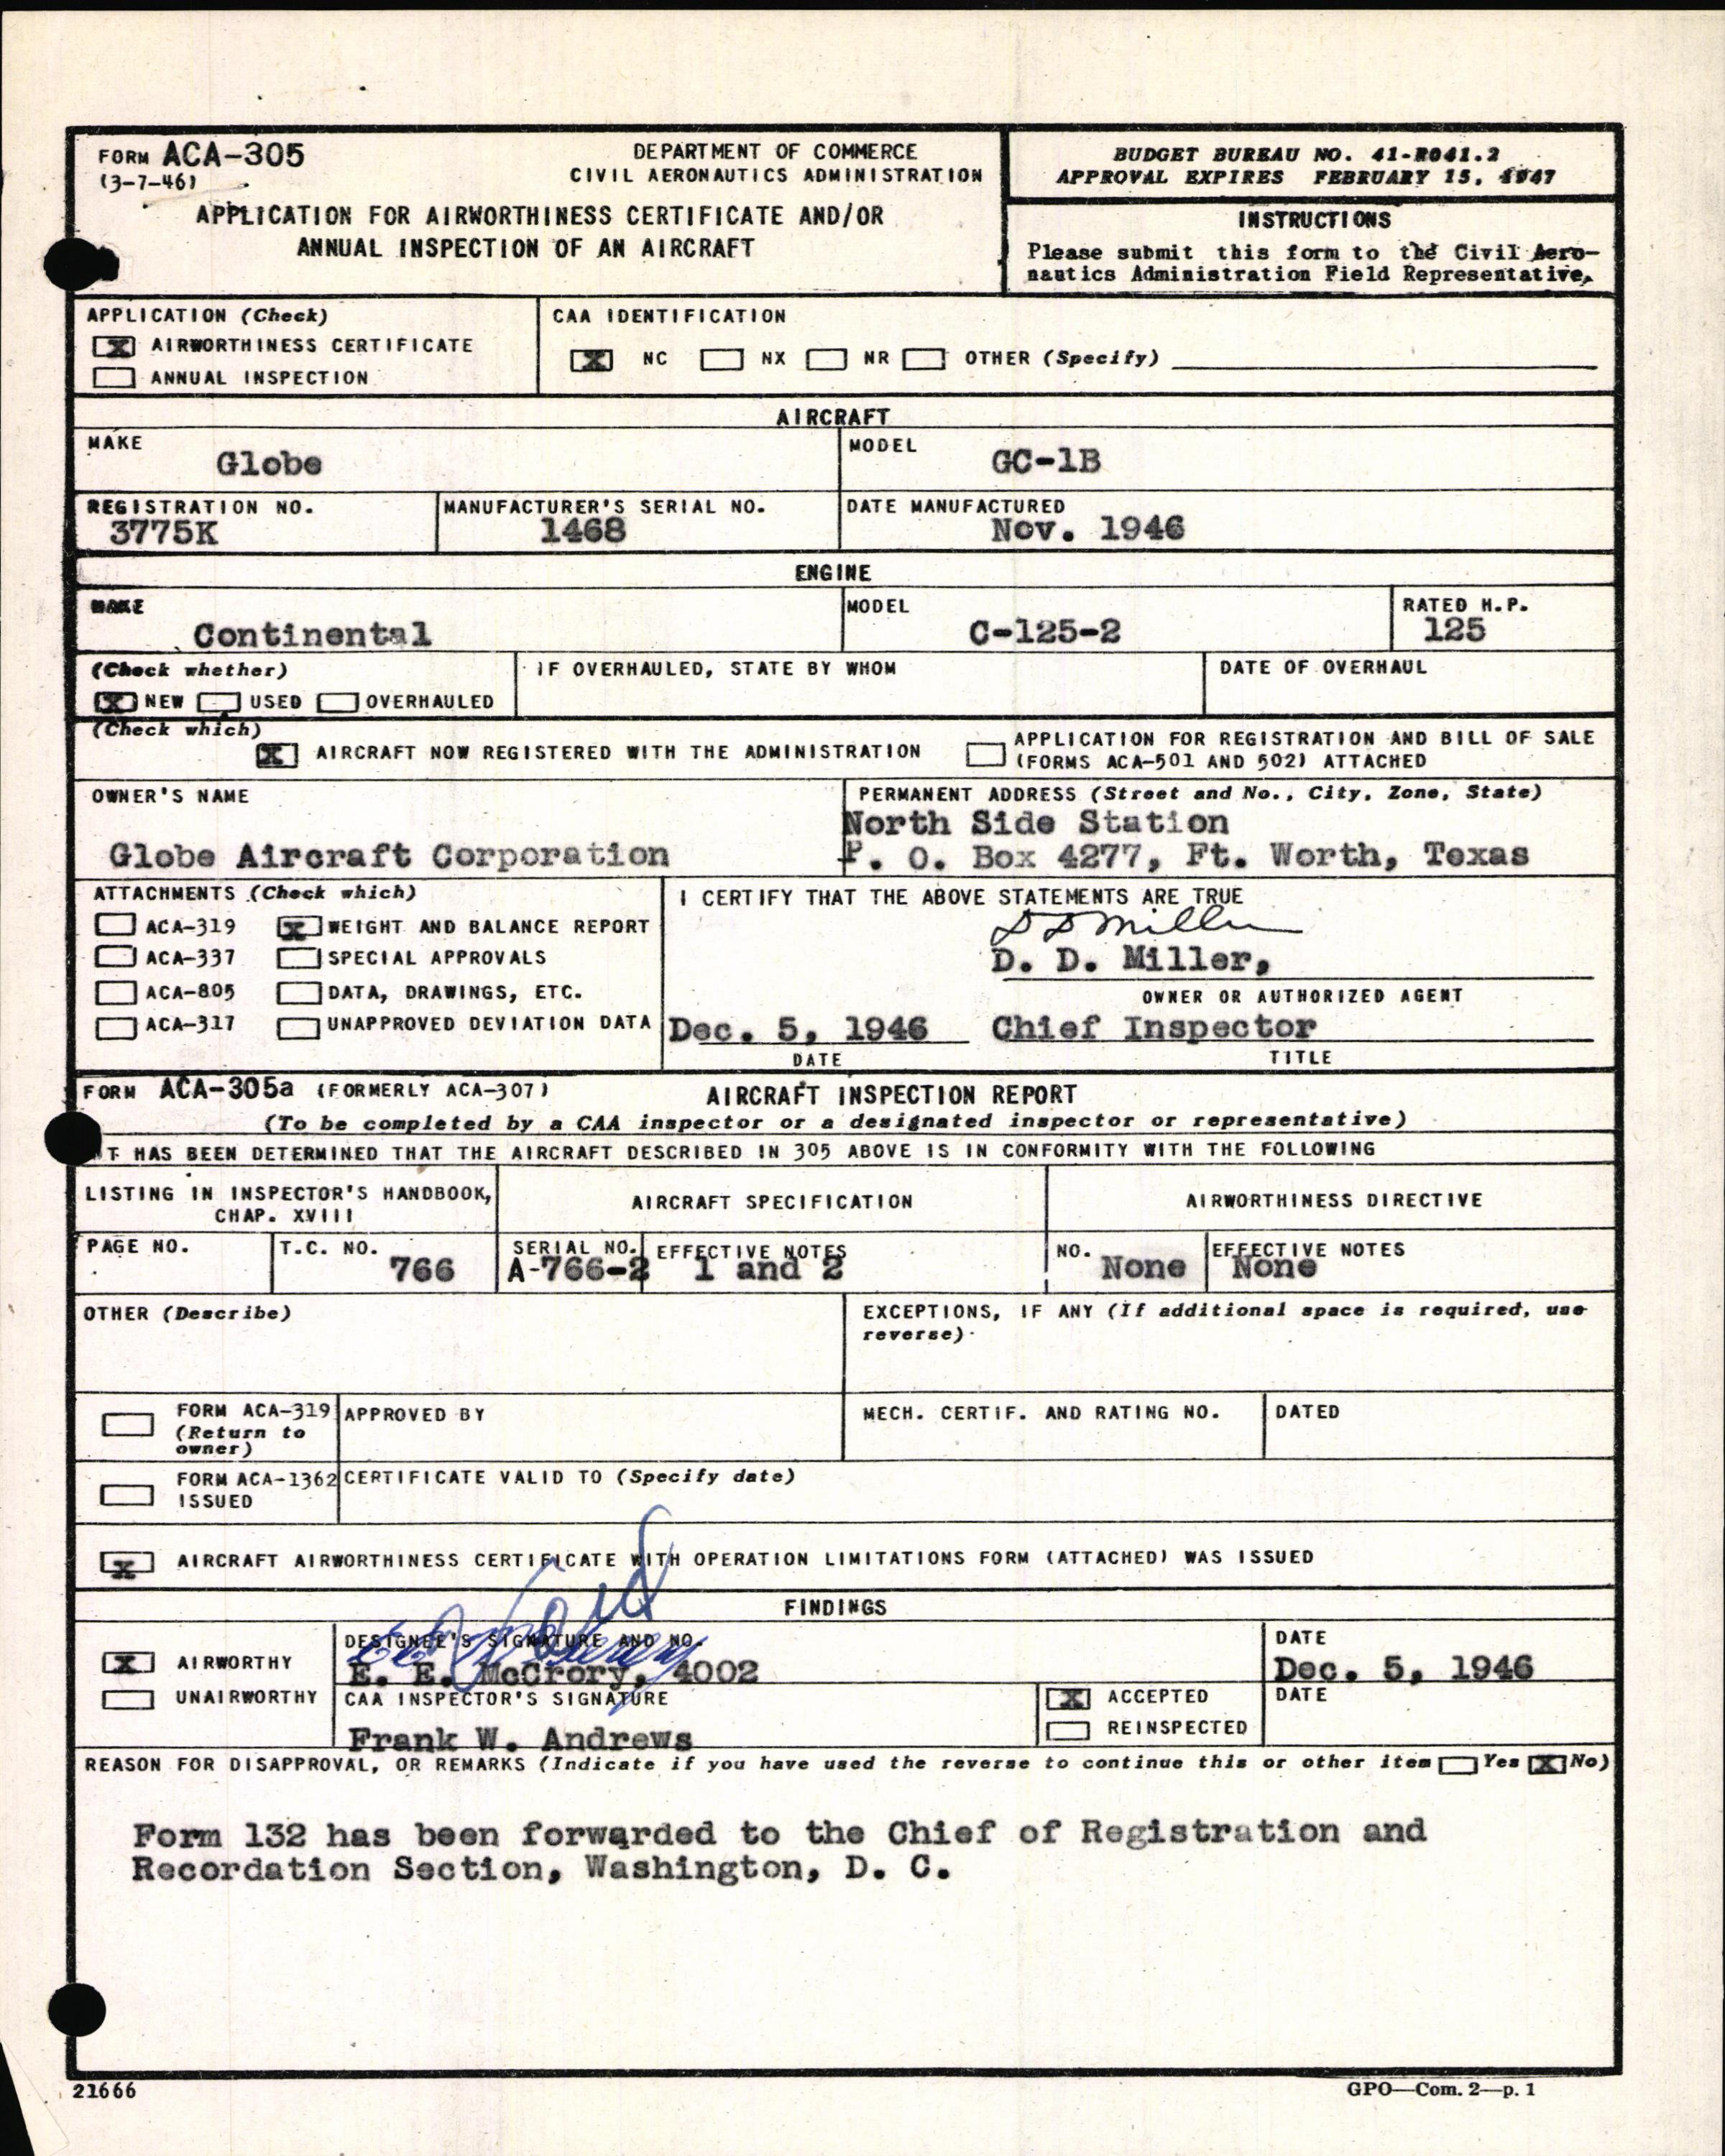 FORM ACA-305
(3-7-46)
DEPARTMENT OF COMMERCE
CIVIL AERONAUTICS ADMINISTRATION
APPLICATION FOR AIRWORTHINESS CERTIFICATE AND/OR
ANNUAL INSPECTION OF AN AIRCRAFT
BUDGET BUREAU NO. 41-R041.2
APPROVAL EXPIRES FEBRUARY 15, 1947
INSTRUCTIONS
Please submit this form to the Civil Aero-
nautics Administration Field Representative.
APPLICATION (Check)
X AIRWORTHINESS CERTIFICATE
ANNUAL INSPECTION
CAA IDENTIFICATION
X NC NX NR OTHER (Specify)
AIRCRAFT
MAKE
Globe
MODEL
GC-1B
REGISTRATION NO.
3775K
MANUFACTURER'S SERIAL NO.
1468
DATE MANUFACTURED
Nov. 1946
ENGINE
MAKE
Continental
MODEL
C-125-2
RATED H.P.
125
(Check whether)
X NEW USED OVERHAULED
IF OVERHAULED, STATE BY WHOM
DATE OF OVERHAUL
(Check which)
X AIRCRAFT NOW REGISTERED WITH THE ADMINISTRATION
APPLICATION FOR REGISTRATION AND BILL OF SALE
(FORMS ACA-501 AND 502) ATTACHED
OWNER'S NAME
Globe Aircraft Corporation
PERMANENT ADDRESS (Street and No., City, Zone, State)
North Side Station
P. O. Box 4277, Ft. Worth, Texas
ATTACHMENTS (Check which)
ACA-319 X WEIGHT AND BALANCE REPORT
ACA-337 SPECIAL APPROVALS
ACA-805 DATA, DRAWINGS, ETC.
ACA-317 UNAPPROVED DEVIATION DATA
I CERTIFY THAT THE ABOVE STATEMENTS ARE TRUE
D D Miller
D. D. Miller,
OWNER OR AUTHORIZED AGENT
Dec. 5, 1946 Chief Inspector
DATE TITLE
FORM ACA-305a (FORMERLY ACA-307) AIRCRAFT INSPECTION REPORT
(To be completed by a CAA inspector or a designated inspector or representative)
IT HAS BEEN DETERMINED THAT THE AIRCRAFT DESCRIBED IN 305 ABOVE IS IN CONFORMITY WITH THE FOLLOWING
LISTING IN INSPECTOR'S HANDBOOK,
CHAP. XVIII
AIRCRAFT SPECIFICATION
AIRWORTHINESS DIRECTIVE
PAGE NO.
T.C. NO.
766
SERIAL NO.
A-766-2
EFFECTIVE NOTES
1 and 2
NO.
None
EFFECTIVE NOTES
None
OTHER (Describe)
EXCEPTIONS, IF ANY (If additional space is required, use
reverse).
FORM ACA-319
(Return to
owner)
APPROVED BY
MECH. CERTIF. AND RATING NO.
DATED
FORM ACA-1362
ISSUED
CERTIFICATE VALID TO (Specify date)
X AIRCRAFT AIRWORTHINESS CERTIFICATE WITH OPERATION LIMITATIONS FORM (ATTACHED) WAS ISSUED
FINDINGS
X AIRWORTHY
UNAIRWORTHY
DESIGNEE'S SIGNATURE AND NO.
E. E. McCrory, 4002
DATE
Dec. 5, 1946
CAA INSPECTOR'S SIGNATURE
Frank W. Andrews
X ACCEPTED
REINSPECTED
DATE
REASON FOR DISAPPROVAL, OR REMARKS (Indicate if you have used the reverse to continue this or other item Yes X No)
Form 132 has been forwarded to the Chief of Registration and
Recordation Section, Washington, D. C.
21666
GPO—Com. 2—p. 1